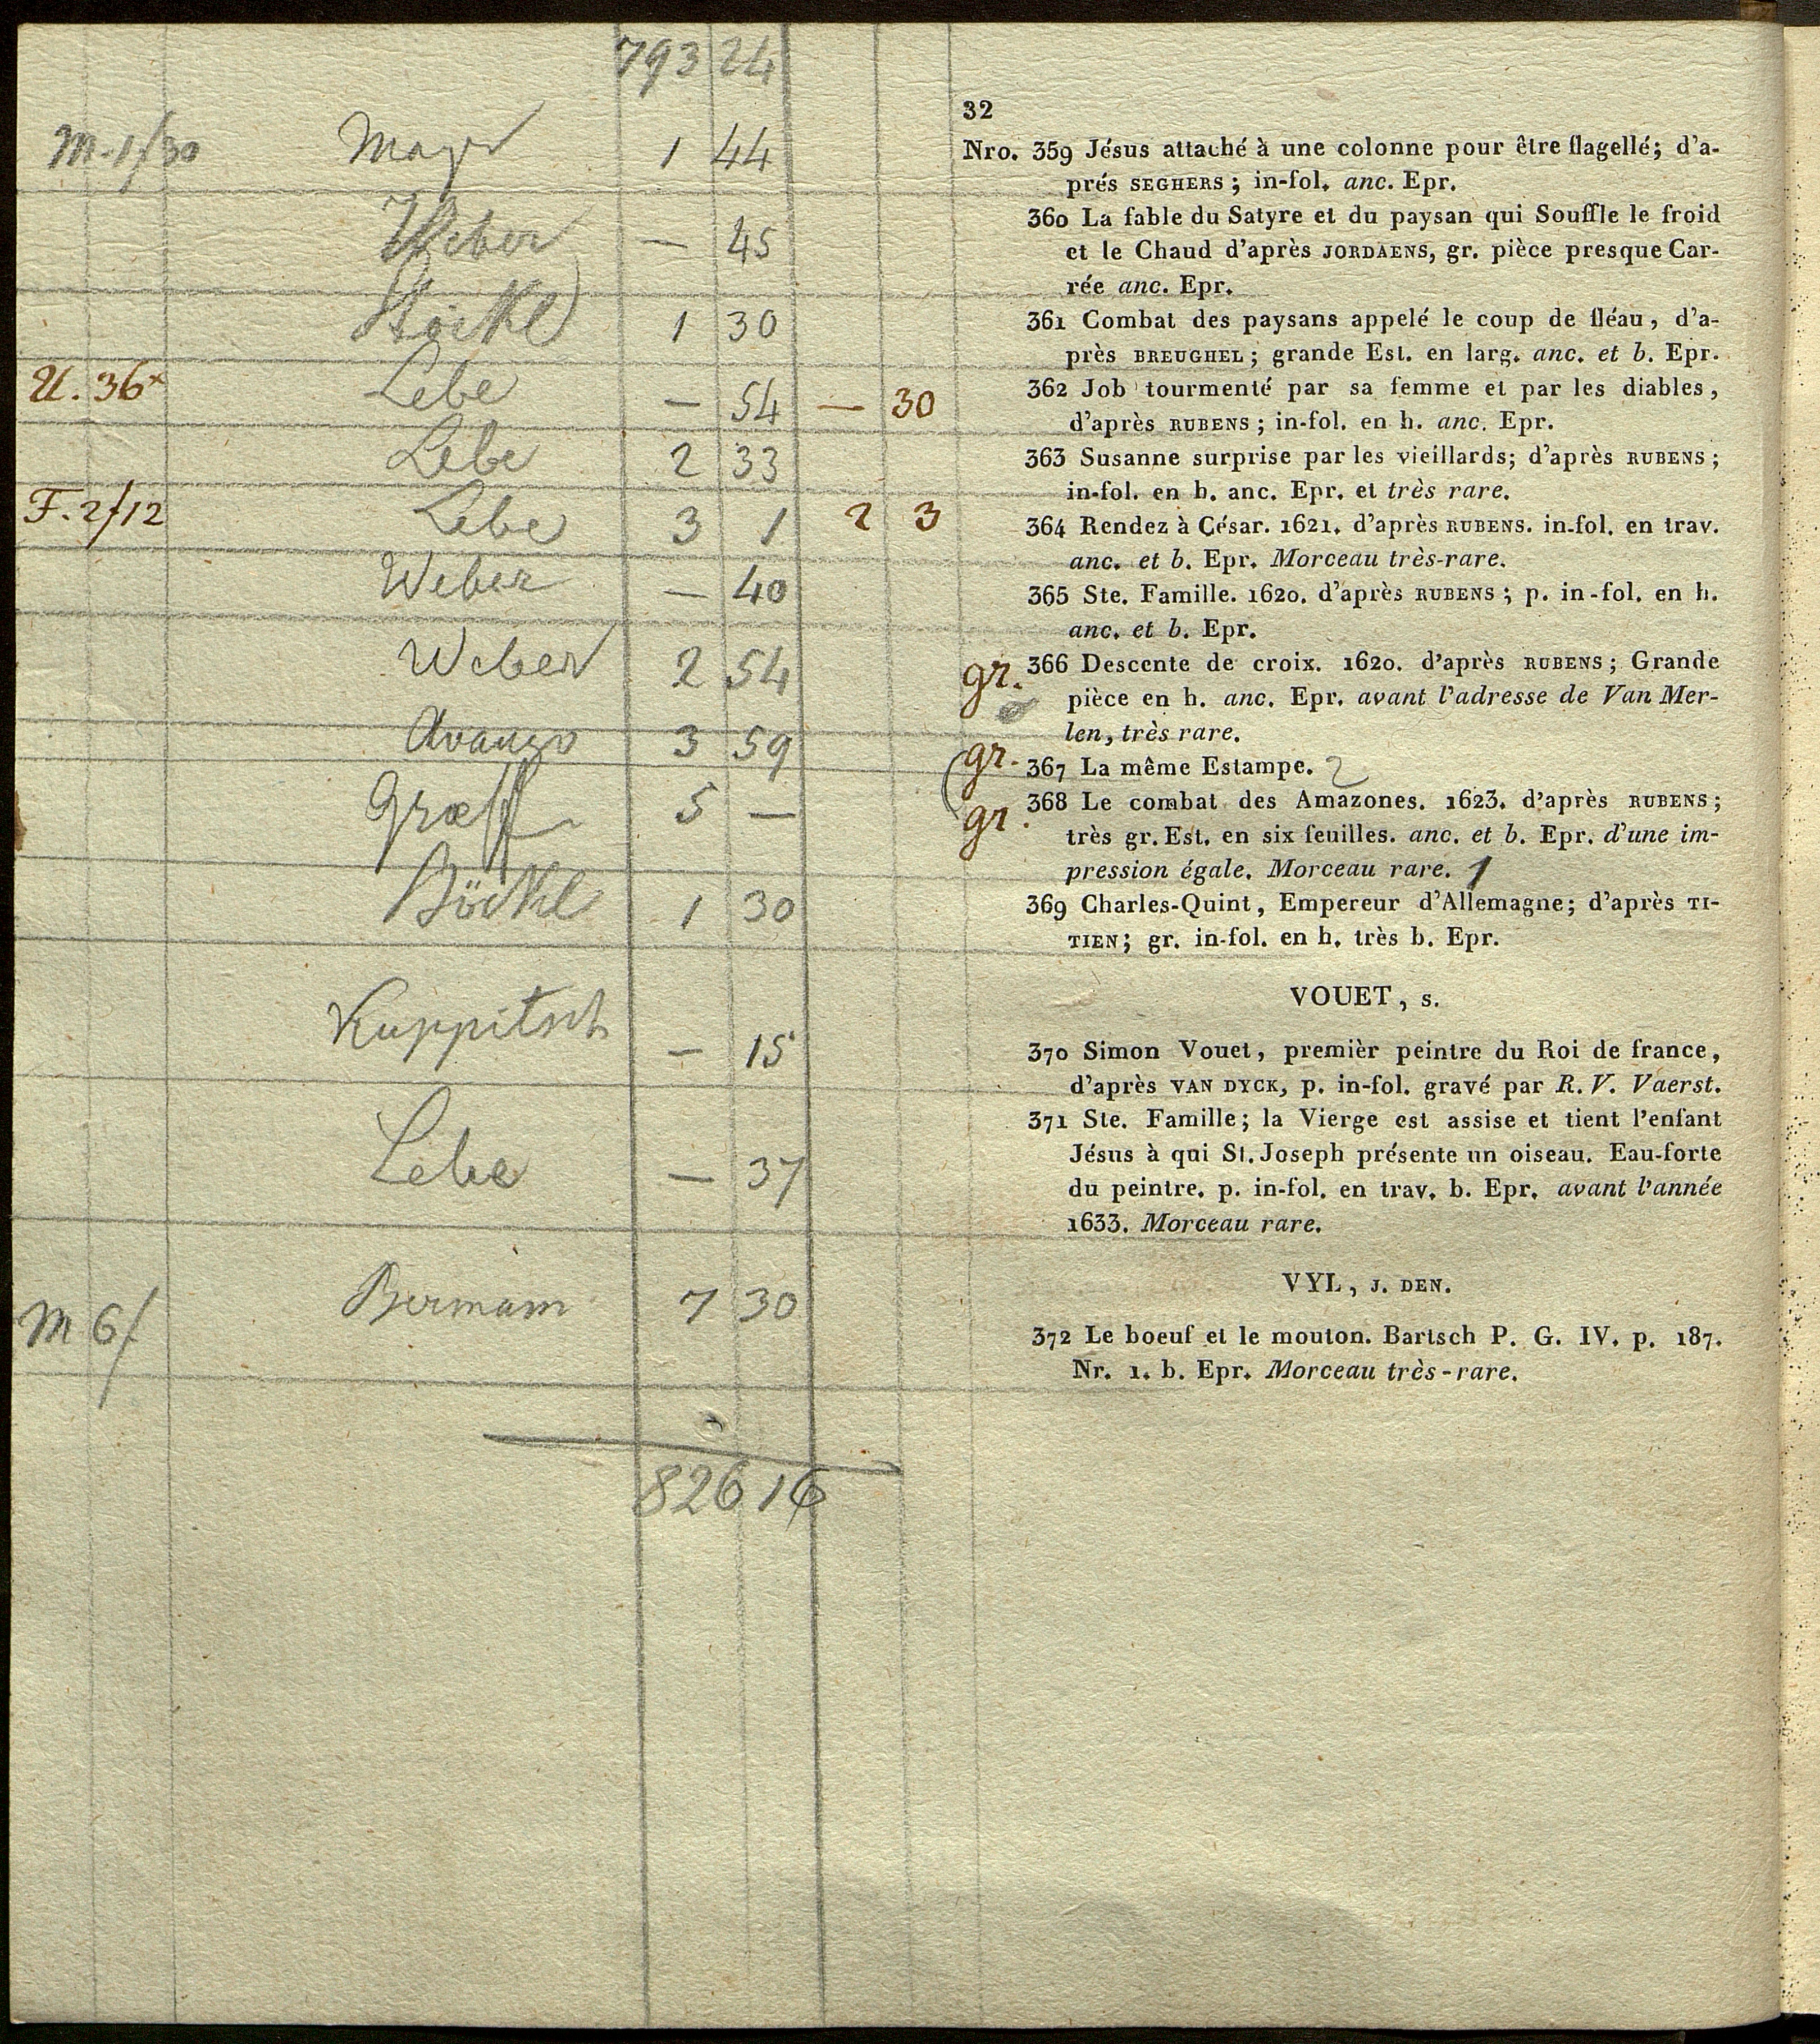 793 24
32
M. 1f30 Mayr 1 44
Nro. 359 Jésus attaché à une colonne pour être flagellé; d'a-
prés SEGHERS; in-fol. anc. Epr.
Weber — 45
360 La fable du Satyre et du paysan qui Souffle le froid
et le Chaud d'après JORDAENS, gr. pièce presque Car-
rée anc. Epr.
Stöckl 1 30
361 Combat des paysans appelé le coup de fléau, d'a-
près BREUGHEL; grande Est. en larg. anc. et b. Epr.
U. 36x Lebe — 54 — 30
362 Job tourmenté par sa femme et par les diables,
d'après RUBENS; in-fol. en h. anc. Epr.
Lebe 2 33
363 Susanne surprise par les vieillards; d'après RUBENS;
in-fol. en h. anc. Epr. et très rare.
F. 2f12 Lebe 3 1 2 3
364 Rendez à César. 1621. d'après RUBENS. in-fol. en trav.
anc. et b. Epr. Morceau très-rare.
Weber — 40
365 Ste. Famille. 1620. d'après RUBENS; p. in-fol. en h.
anc. et b. Epr.
Weber 2 54
gr. 366 Descente de croix. 1620. d'après RUBENS; Grande
pièce en h. anc. Epr. avant l'adresse de Van Mer-
len, très rare.
3 59
gr. 367 La même Estampe. 2
Graeff 5 —
gr. 368 Le combat des Amazones. 1623. d'après RUBENS;
très gr. Est. en six feuilles. anc. et b. Epr. d'une im-
pression égale. Morceau rare. 1
1 30
369 Charles-Quint, Empereur d'Allemagne; d'après TI-
TIEN; gr. in-fol. en h. très b. Epr.
VOUET, S.
Kuppitsch — 15
370 Simon Vouet, premièr peintre du Roi de france,
d'après VAN DYCK, p. in-fol. gravé par R. V. Vaerst.
Lebe — 37
371 Ste. Famille; la Vierge est assise et tient l'enfant
Jésus à qui St. Joseph présente un oiseau. Eau-forte
du peintre. p. in-fol. en trav. b. Epr. avant l'année
1633. Morceau rare.
VYL, J. DEN.
M 6f Bermann 7 30
372 Le boeuf et le mouton. Bartsch P. G. IV. p. 187.
Nr. 1. b. Epr. Morceau très-rare.
826 16